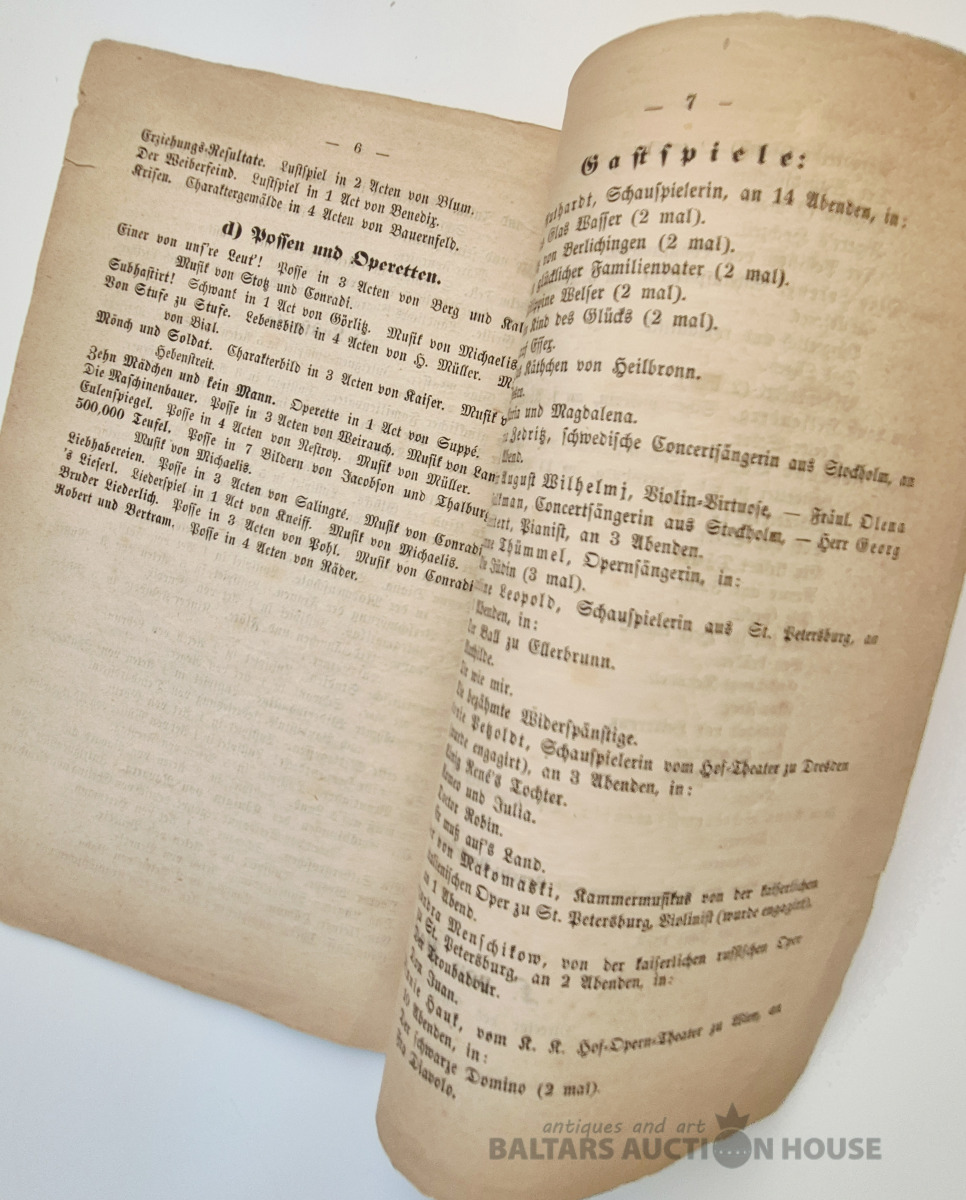 — 6 —
Erziehungs-Resultate. Lustspiel in 2 Acten von Blum.
Der Weiberfeind. Lustspiel in 1 Act von Benedix.
Krisen. Charaktergemälde in 4 Acten von Bauernfeld.
d) Possen und Operetten.
Einer von uns're Leut'! Posse in 3 Acten von Berg und
Musik von Stolz und Conradi.
Subhastirt! Schwank in 1 Act von Görlitz. Musik von Michaelis.
Von Stufe zu Stufe. Lebensbild in 4 Acten von H. Müller.
von Bial.
Mönch und Soldat. Charakterbild in 3 Acten von Kaiser. Musik
Hebenstreit.
Zehn Mädchen und kein Mann. Operette in 1 Act von Suppé.
Die Maschinenbauer. Posse in 3 Acten von Weirauch. Musik von
Eulenspiegel. Posse in 4 Acten von Nestroy. Musik von Müller.
500,000 Teufel. Posse in 7 Bildern von Jacobson und Thalburg.
Musik von Michaelis.
Liebhabereien. Posse in 3 Acten von Salingré. Musik von Conradi
's Lieserl. Liederspiel in 1 Act von Kneiff. Musik von Michaelis.
Bruder Liederlich. Posse in 3 Acten von Pohl. Musik von Conradi
Robert und Bertram. Posse in 4 Acten von Räder.
— 7 —
Gastspiele:
Schauspielerin, an 14 Abenden, in:
Glas Wasser (2 mal).
von Berlichingen (2 mal).
glücklicher Familienvater (2 mal).
Welser (2 mal).
Kind des Glücks (2 mal).
Essex.
Käthchen von Heilbronn.
und Magdalena.
schwedische Concertsängerin aus Stockholm, an
August Wilhelmj, Violin-Virtuose, — Fräul. Olena
Concertsängerin aus Stockholm, — Herr Georg
Pianist, an 3 Abenden.
Thümmel, Opernsängerin, in:
Jüdin (3 mal).
Leopold, Schauspielerin aus St. Petersburg, an
Abenden, in:
Ball zu Ellerbrunn.
wie mir.
bezähmte Widerspänstige.
Petzoldt, Schauspielerin vom Hof-Theater zu Dresden
(wurde engagirt), an 3 Abenden, in:
König René's Tochter.
Romeo und Julia.
Doctor Robin.
Er muß auf's Land.
von Makomaski, Kammermusikus von der kaiserlichen
italienischen Oper zu St. Petersburg, Violinist (wurde engagirt),
an 1 Abend.
Menschikow, von der kaiserlichen russischen Oper
zu St. Petersburg, an 2 Abenden, in:
Der Troubadour.
Don Juan.
Hauk, vom K. K. Hof-Opern-Theater zu Wien, an
10 Abenden, in:
Der schwarze Domino (2 mal).
Fra Diavolo.
antiques and art
BALTARS AUCTION HOUSE